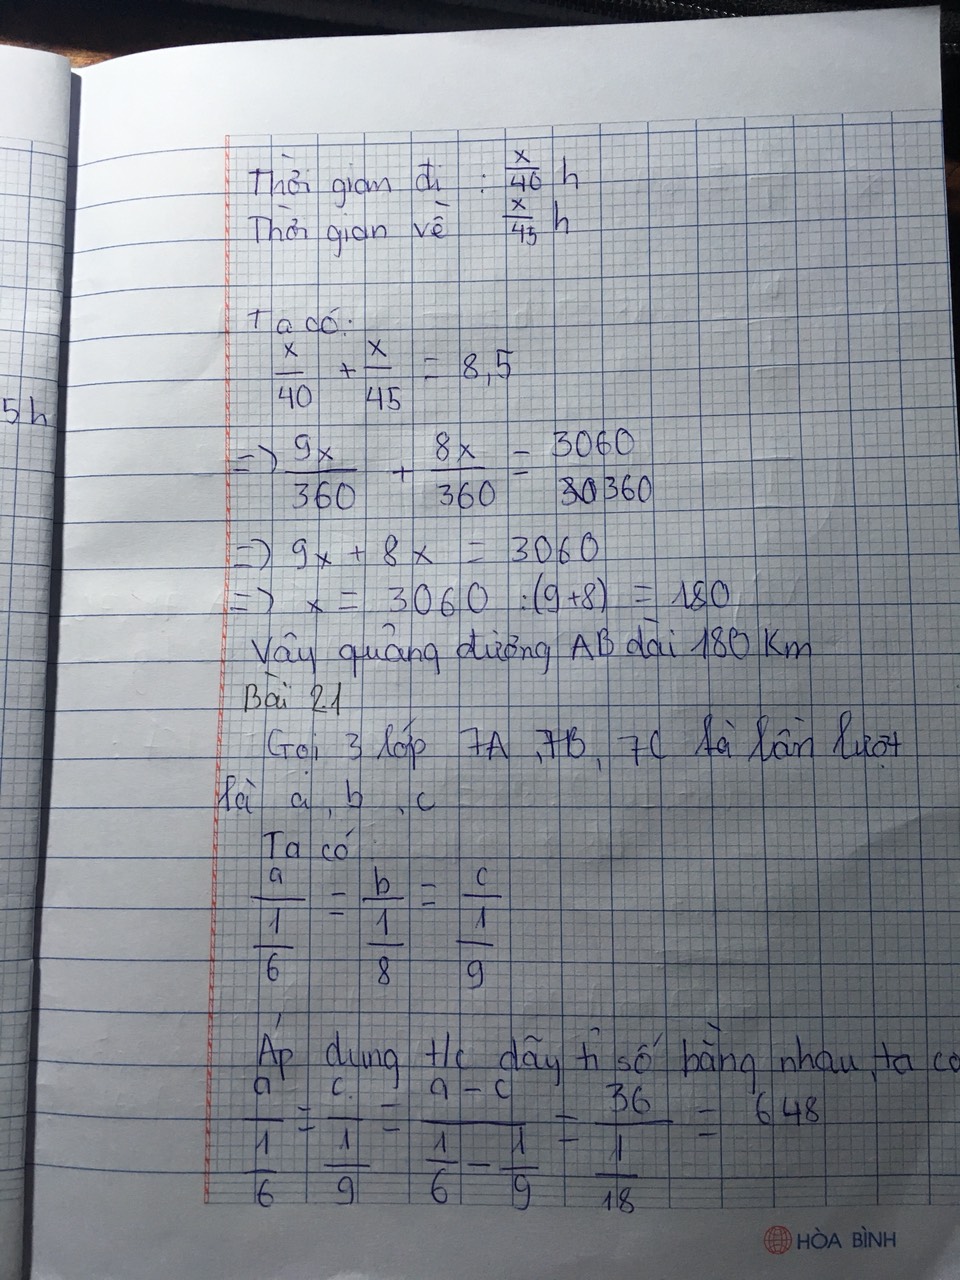 5h
Thời gian đi : x/40 h
Thời gian về x/45 h
Ta có:
x/40 + x/45 = 8,5
=> 9x/360 + 8x/360 = 3060/360
=> 9x + 8x = 3060
=> x = 3060 :(9+8) = 180
Vậy quảng đường AB dài 180 Km
Bài 21
Gọi 3 lớp 7A, 7B, 7C là lần lượt
là a, b, c
Ta có
a/(1/6) = b/(1/8) = c/(1/9)
Áp dụng t/c dãy tỉ số bằng nhau, ta có
a/(1/6) = c/(1/9) = (a - c)/(1/6 - 1/9) = 36/(1/18) = 648
HÒA BÌNH